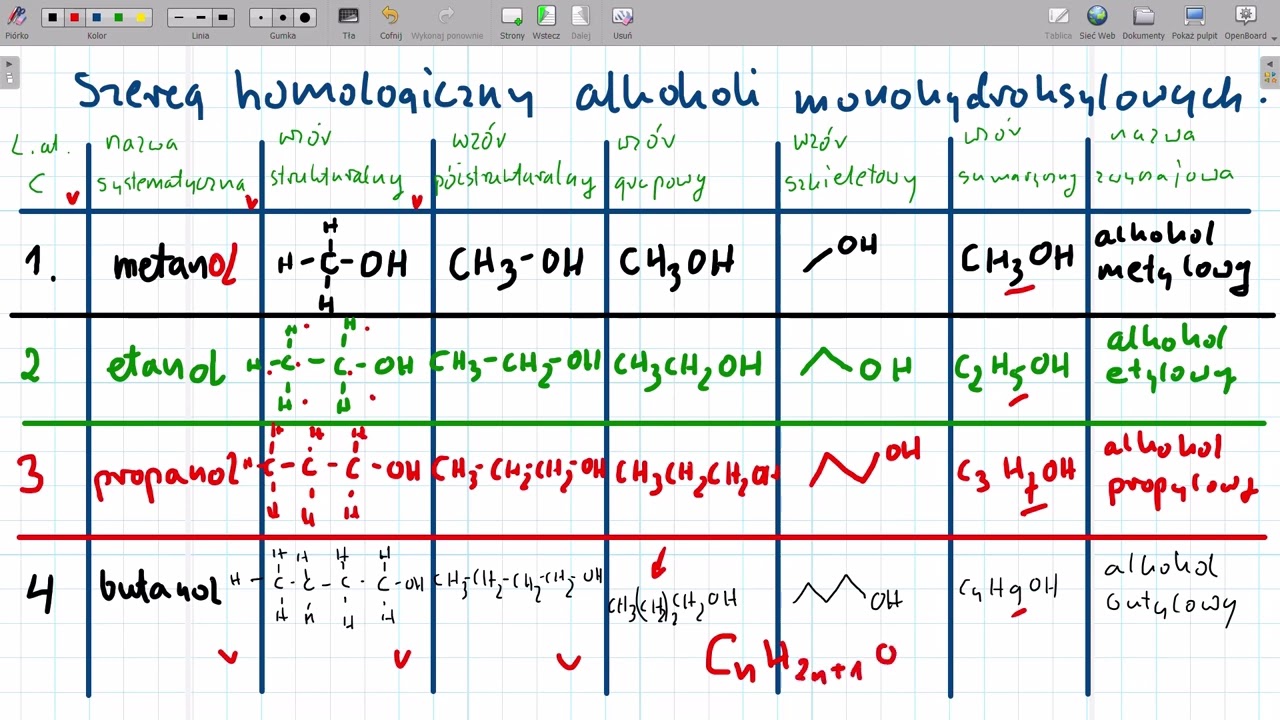 Piórko Kolor Linia Gumka Tła Cofnij Wykonaj ponownie Strony Wstecz Dalej Usuń Tablica Sieć Web Dokumenty Pokaż pulpit OpenBoard
Szereg homologiczny alkoholi monohydroksylowych.
L.at. C
nazwa systematyczna
wzór strukturalny
wzór półstrukturalny
wzór grupowy
wzór szkieletowy
wzór sumaryczny
nazwa zwyczajowa
1. metanol
H
H-C-OH
H
CH3-OH CH3OH
OH
CH3OH
alkohol
metylowy
2 etanol
H H
H-C-C-OH
H H
CH3-CH2-OH CH3CH2OH
OH
C2H5OH
alkohol
etylowy
3 propanol
H H H
H C-C-C-OH
H H H
CH3-CH2-CH2-OH CH3CH2CH2OH
OH
C3H7OH
alkohol
propylowy
4 butanol
H H H H
H-C-C-C-C-OH
H H H H
CH3-CH2-CH2-CH2-OH CH3(CH2)2CH2OH
OH
C4H9OH
alkohol
butylowy
CnH2n+1 O